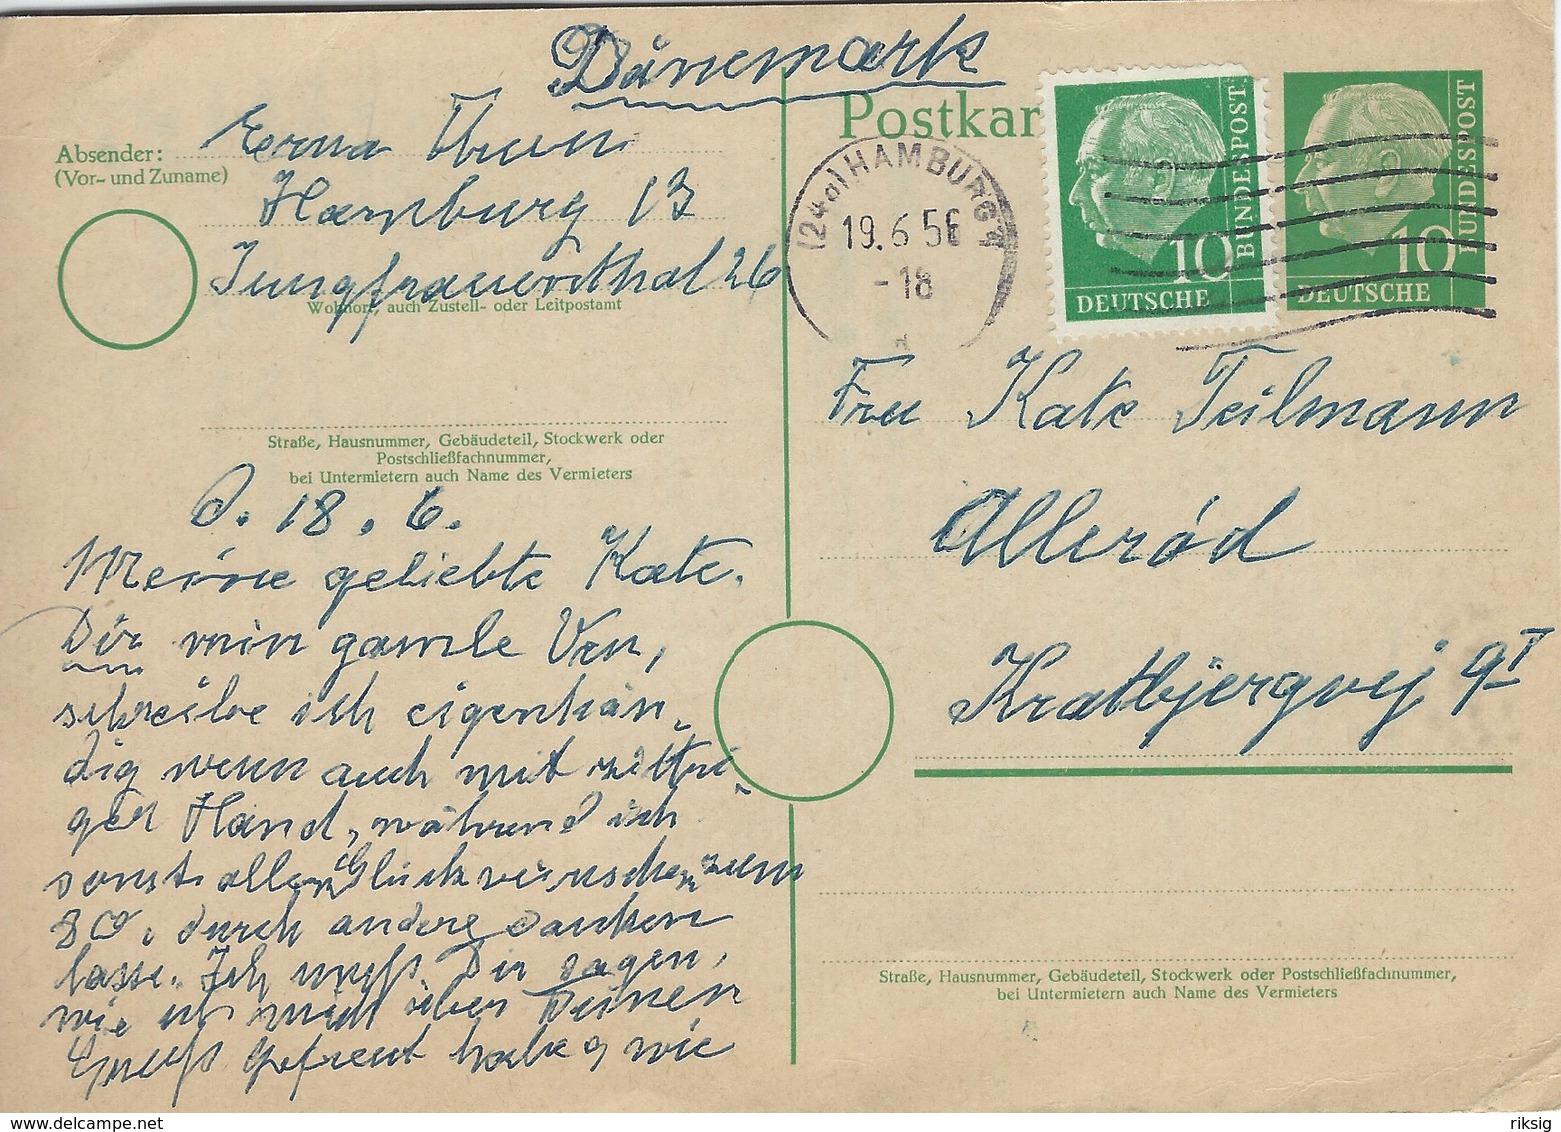 Dänemark
Postkar
Absender:
(Vor- und Zuname)
Erna Thun
Hamburg 13
Jungfrauenthal 26
Wohnort, auch Zustell- oder Leitpostamt
(24a) HAMBURG
19.6.56
-18
10
DEUTSCHE
BUNDESPOST
10
DEUTSCHE
BUNDESPOST
Straße, Hausnummer, Gebäudeteil, Stockwerk oder
Postschließfachnummer,
bei Untermietern auch Name des Vermieters
Frau Kate Teilmann
Alleród
Kratbjergvej 9 I
d. 18. 6.
Meine geliebte Kate.
Dir mein gamle Ven,
schreibe ich eigenhän-
dig wenn auch mit zittri-
ger Hand, während ich
sonst allen Glückwünschen zum
80. durch andere danken
lasse. Ich muß Dir sagen,
wie ich mich über Deinen
Gruß gefreut habe, wie
Straße, Hausnummer, Gebäudeteil, Stockwerk oder Postschließfachnummer,
bei Untermietern auch Name des Vermieters
riksig